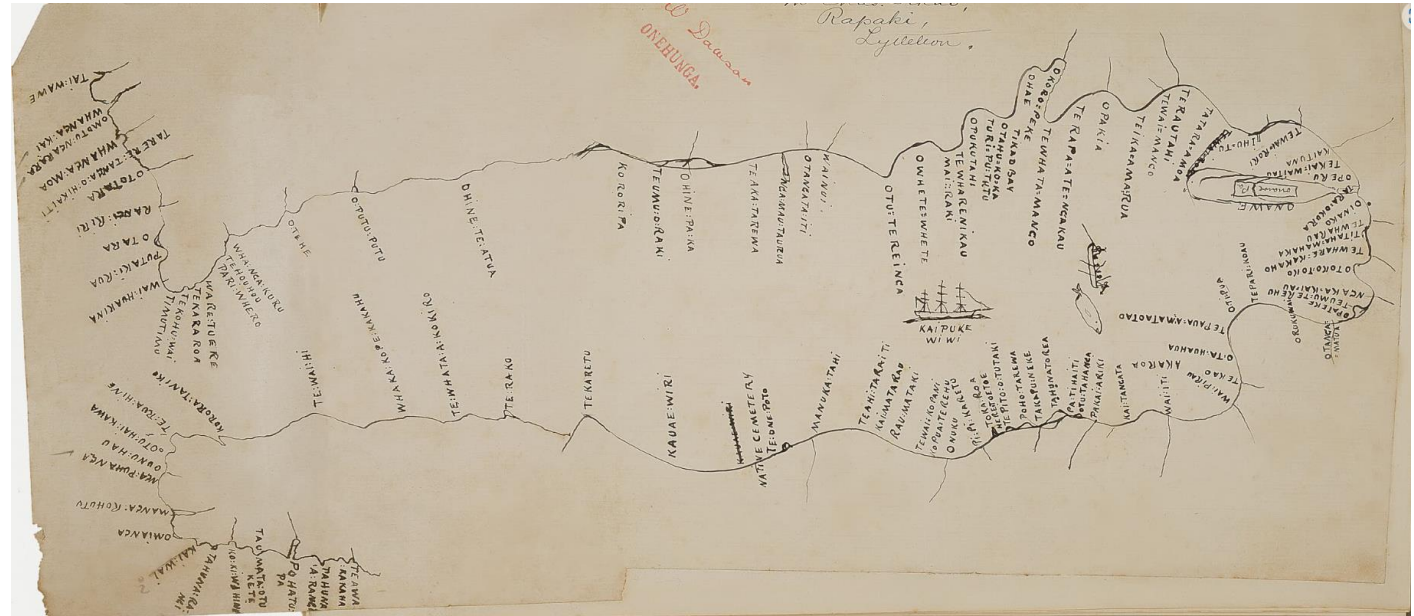 Rapaki,
Lyttelton.
Dawson
ONEHUNGA.
TAI:WAWE
WHANGA:KAI
OMOTU:NGARARA
WHANGA:MOA
TARERE:TANGA:O:HIKAITI
OTOTARA
RANGI:RIRI
OTARA
PUTAKI:RUA
WAI:HUAKINA
TIMUTIMU
TEKOHU:WAI
TEKARAROA
WARE:TUERE
PARI:WHERO
TEHOUHOU
WHA:NGA:KURU
OTEHE
O:PUTU:PUTU
OHINE:TE:ATUA
KORORIPA
TEUMU:O:RAKI
OHINE:PA:KA
TEAKA:TAREWA
NGA:MAU:TAURUA
OTANGATAITI
WAINUI
OTU:TEREINGA
OWHETE=WHETE
MAI:RAKI
TE WHARENIKAU
OPUKUTAHI
TURI:PU:TUTU
OTAHU=KOKA
TIKAO BAY
OHAE
OKORO=PEKE
TEWHATA=MANGO
TERAPA=ATE=NGAKAU
OPAKIA
TEIKA=MA:RUA
TEWAI=MANGO
TERAUTAHI
TATARA=AMOA
IHU:TU
KAITUNA
TEKAI:WAITAU
OPERU
ONAWE
ONAWE
TEWHARAU
TITAHA:MAHAKA
TEWHARE:KAKAHO
OTOKOTOKO
NGA:KA:KAI:AU
TEUMU:TE:REHU
OTANGA:
MATUE
TEPARI:NOAU
OTIPUA
TEPAUA:A:MATAOTAO
O:TA:HUAHUA
AKAROA
TEKAO
WAI:PIRAU
KAIPUKE
WIWI
WAI:ITI
KAI:TANGATA
PAKA:ARIKI
OOTU:TAHANGA
PA:TIHAITI
TAHUNATOREA
TAKAPUNEKE
POHO:TAREWA
TEPITO:O:TUTAKI
PI:PIKARETU
ONUKU
RAU:MATAKI
KAI:MATARAO
TEAHI:TARAITI
MANUKA:TAHI
TE:ONE:POTO
NATIVE CEMETERY
KAUAE=WIRI
KAUAE:WIRI
TEKARETU
TE:RAKO
TE:WHATA:A:KOKIRO
WHAKA:KOPEKAKAHU
TE:WAI:HI
KORORA:TANIKO
TE:RUA:HINE
OOTU:HAI:KAWA
OUNU:HAU
NGA:PUHANGA
MANGA:KOHUTU
OMIANGA
KAI:WAI
TAUMATA:OTU
KETE
POHATU:
PA
TAHUNA
TEAWA
KAKAHA